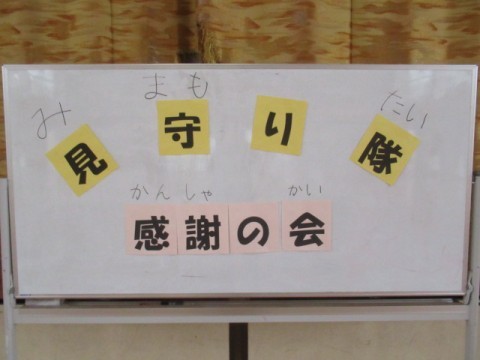 み まも たい
見守り隊
かんしゃ かい
感謝の会